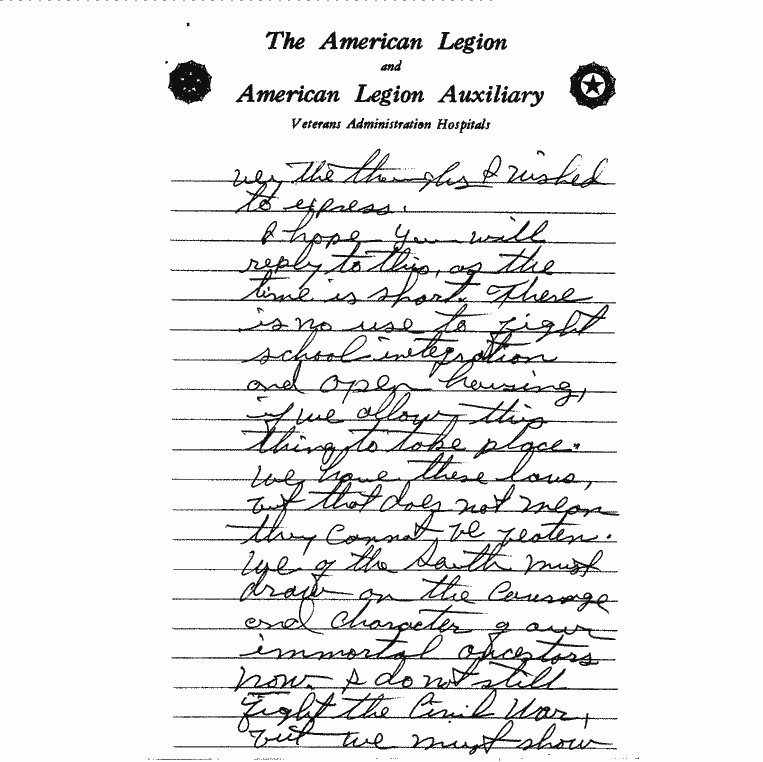 The American Legion
and
American Legion Auxiliary
Veterans Administration Hospitals
vey the thoughts I wished
to express.
I hope you will
reply to this, as the
time is short. There
is no use to fight
school integration
and open housing,
if we allow this
thing to take place.
We have these laws,
but that does not mean
they cannot be beaten.
We of the South must
draw on the courage
and character of our
immortal ancestors
now. I do not still
fight the Civil War,
but we must show